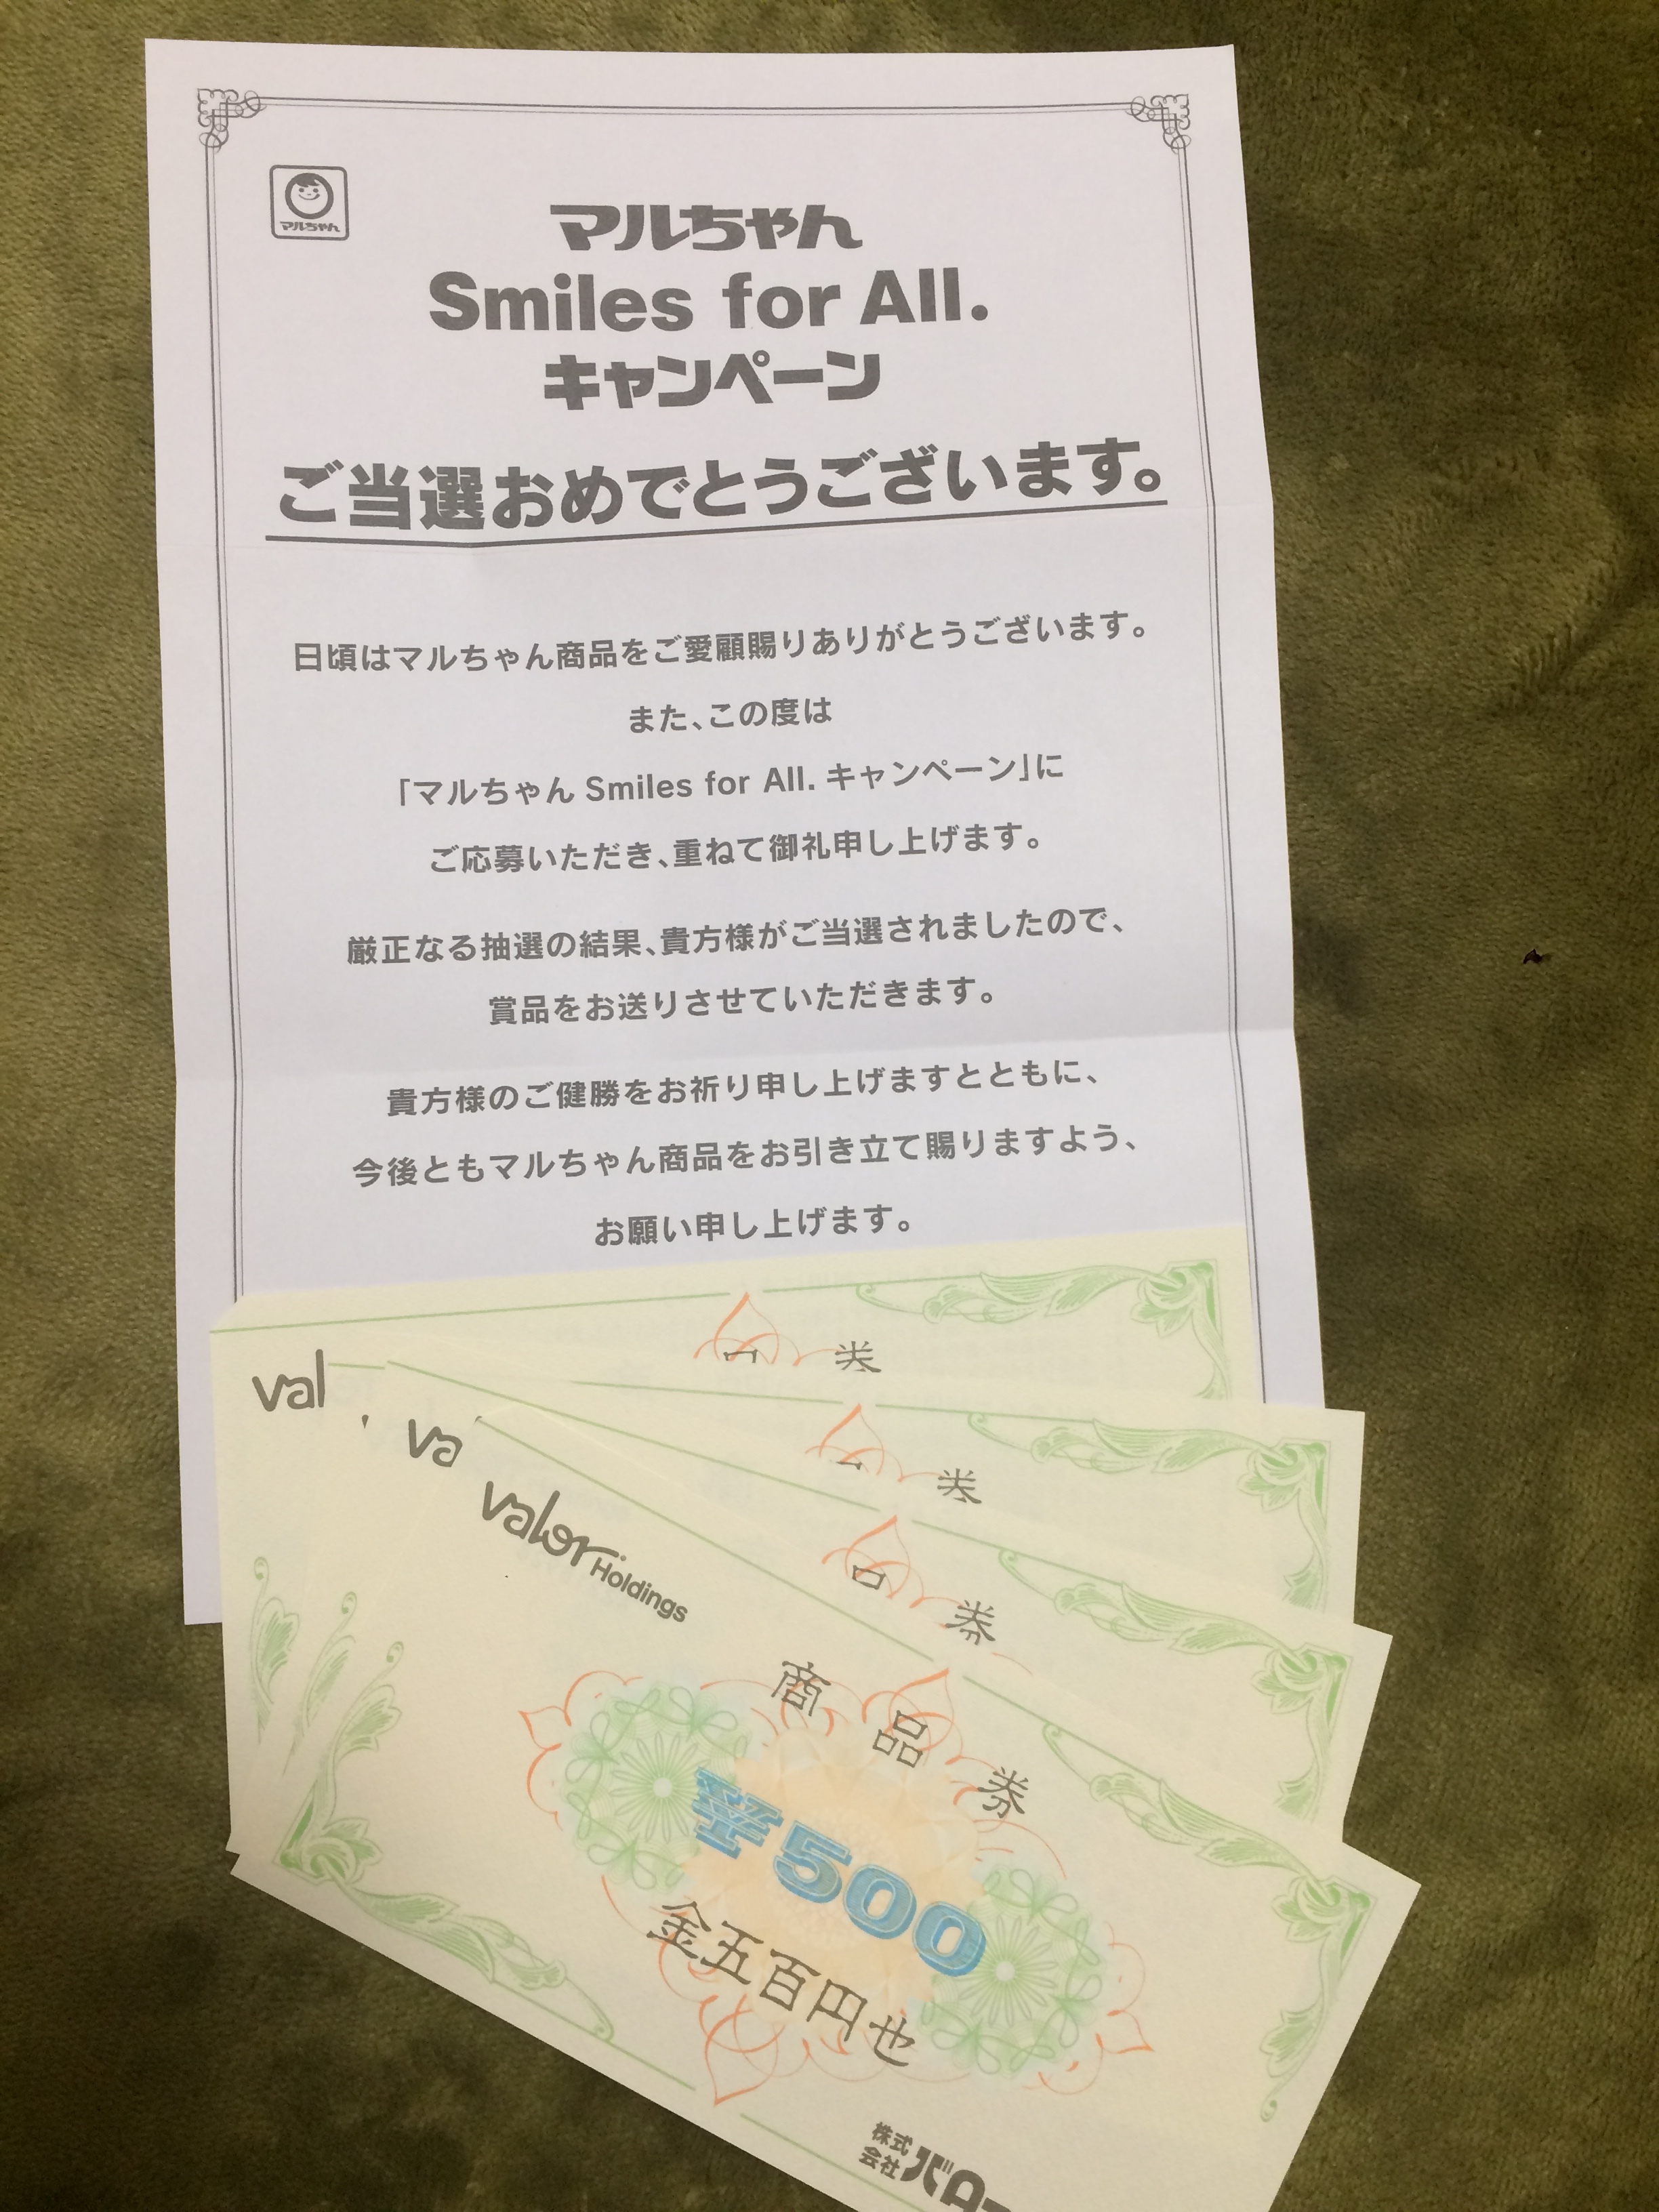 マルちゃん
マルちゃん
Smiles for All.
キャンペーン
ご当選おめでとうございます。
日頃はマルちゃん商品をご愛顧賜りありがとうございます。
また、この度は
「マルちゃん Smiles for All. キャンペーン」に
ご応募いただき、重ねて御礼申し上げます。
厳正なる抽選の結果、貴方様がご当選されましたので、
賞品をお送りさせていただきます。
貴方様のご健勝をお祈り申し上げますとともに、
今後ともマルちゃん商品をお引き立て賜りますよう、
お願い申し上げます。
val
va
券
valor Holdings
商品券
¥500
金五百円也
株式会社